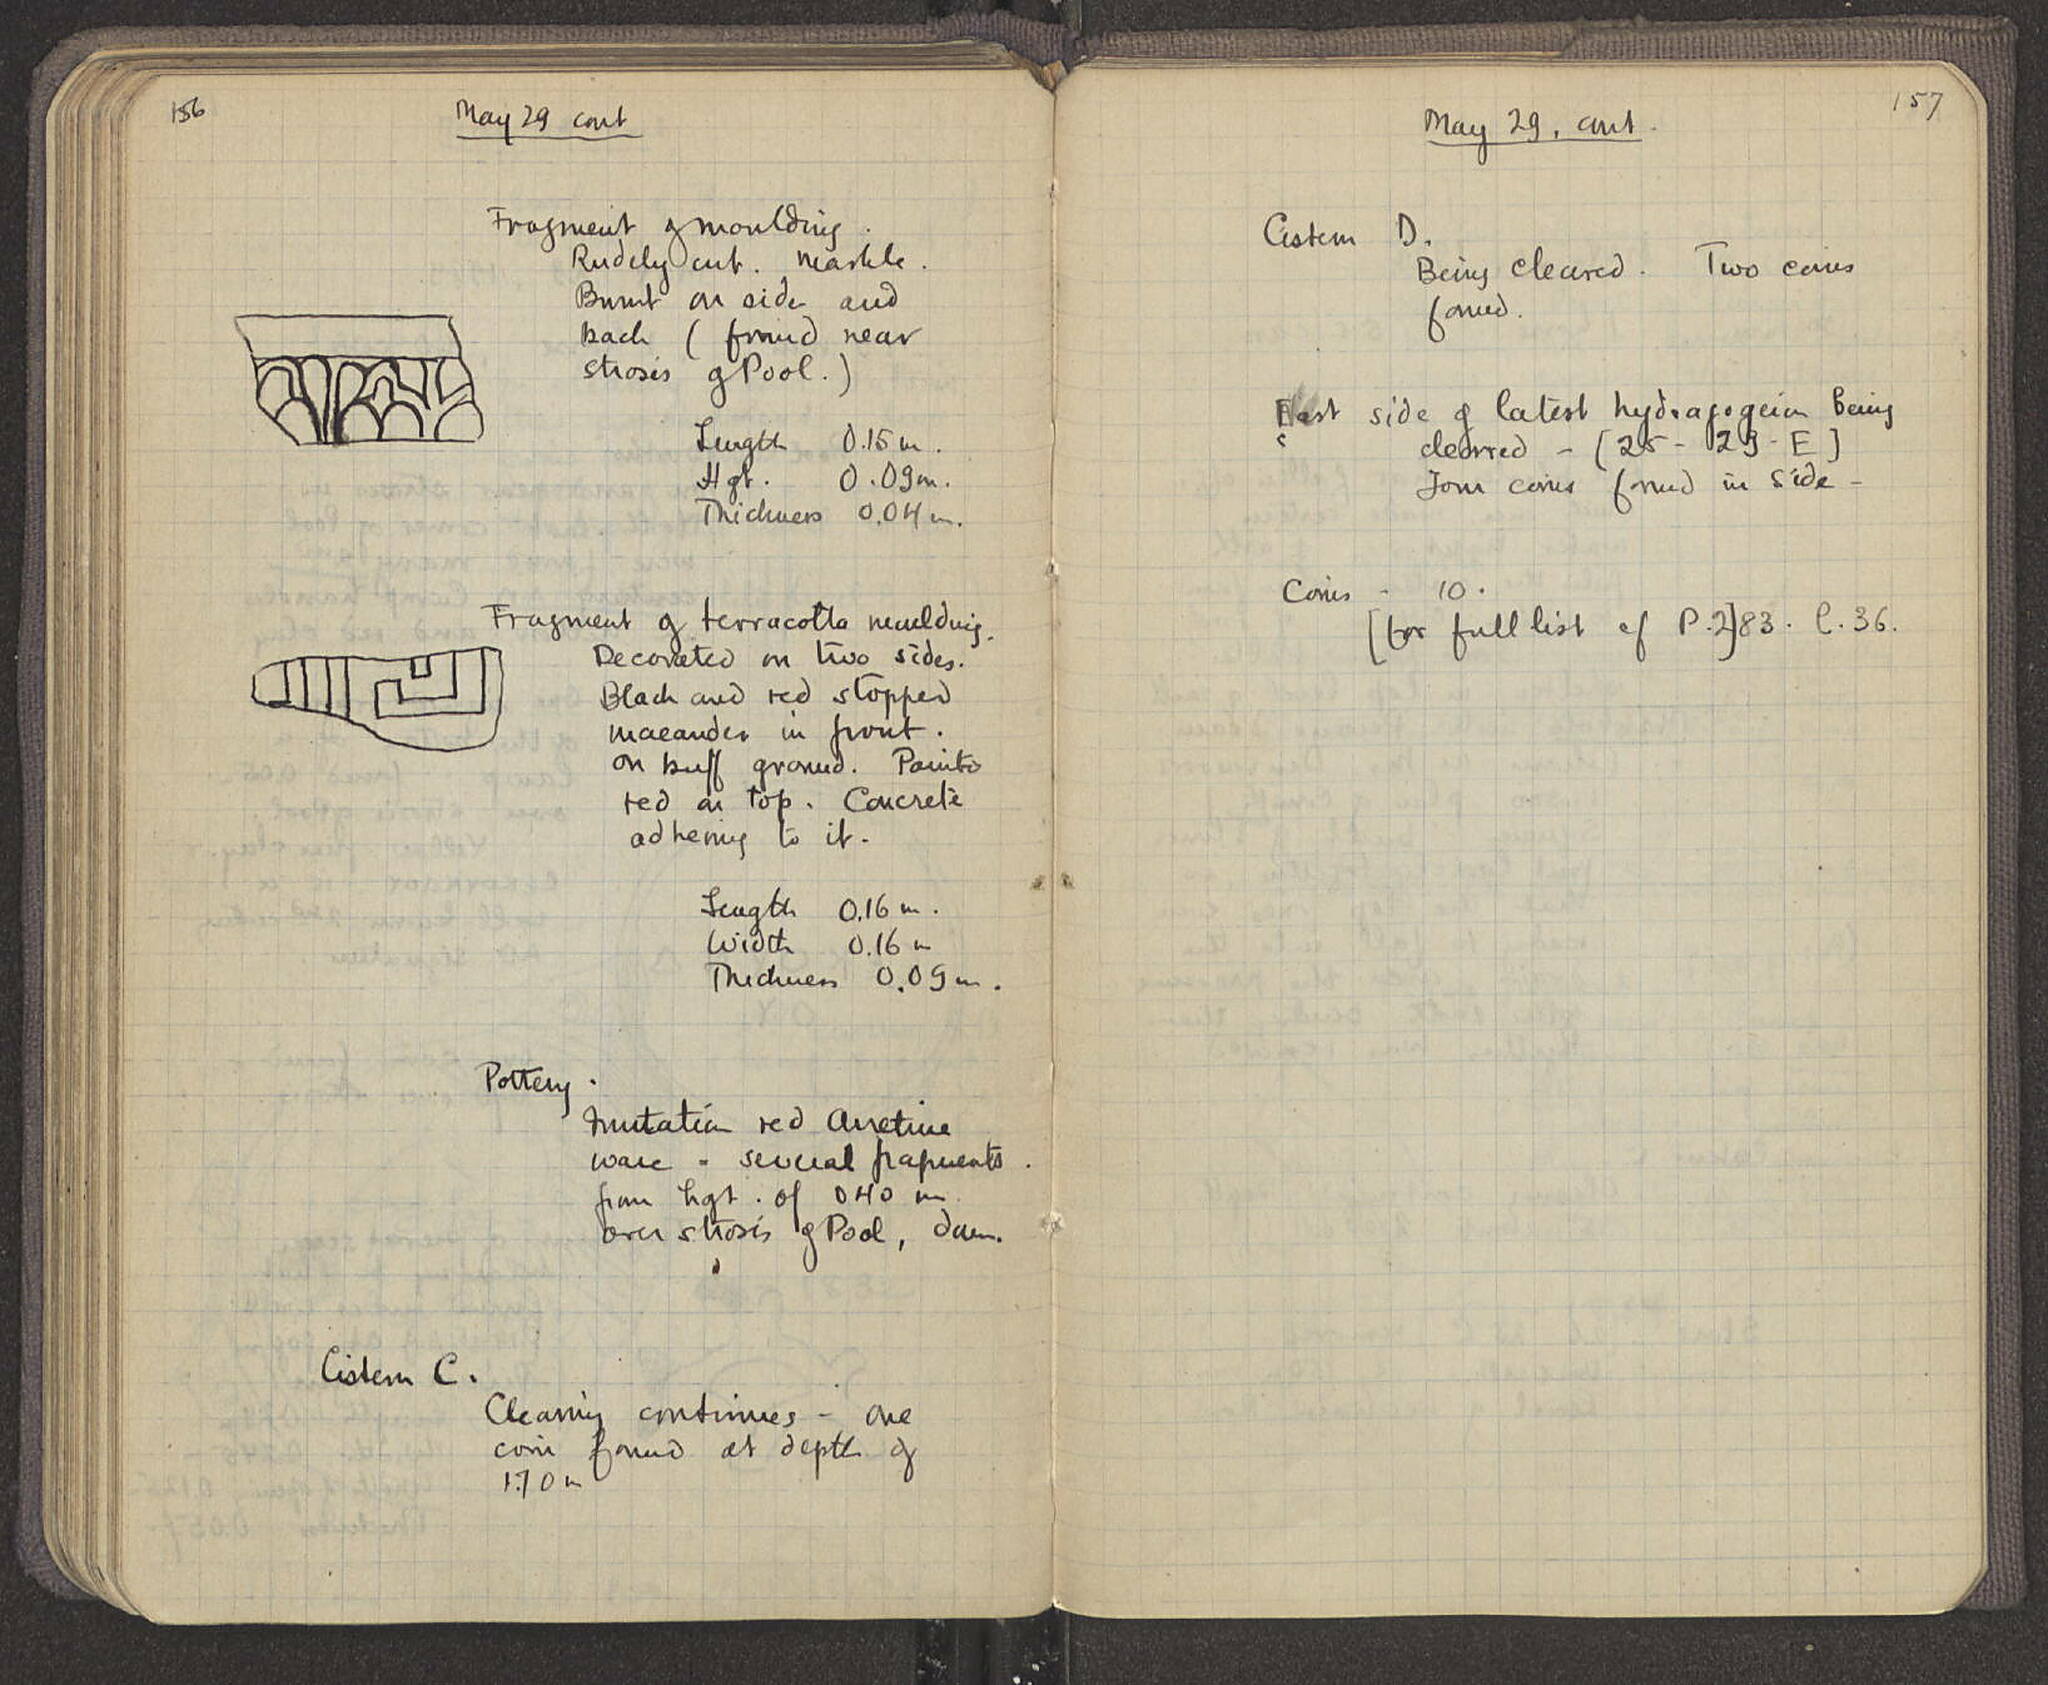 156
May 29 cont
Fragment of moulding.
Rudely cut. Marble.
Burnt on side and
back (found near
strosis of Pool.)
Length 0.15 m.
Hgt. 0.09 m.
Thickness 0.04 m.
Fragment of terracotta moulding.
Decorated on two sides.
Black and red stopped
maeander in front.
on buff ground. Painted
red on top. Concrete
adhering to it.
Length 0.16 m.
Width 0.16 m
Thickness 0.09 m.
Pottery.
Imitation red Arretine
ware - several fragments.
from hgt. of 0.40 m
over strosis of Pool, down.
Cistern C.
Clearing continues - one
coin found at depth of
1.70 m
157
May 29, cont.
Cistern D.
Being cleared. Two coins
found.
East side of latest hydragogeion being
cleared - [25 - 29 - E]
Four coins found in side -
Coins - 10.
[for full list cf P. 283. l. 36.